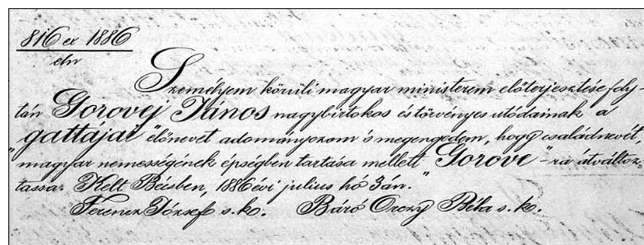 816 ex 1886
eln
Személyem körüli magyar ministerem előterjesztése foly-
tán Gorovej János nagybirtokos és törvényes utódainak a
"gattájai" előnevet adományozom s megengedem, hogy családnevét,
magyar nemességének épségben tartása mellett "Gorove"-ra átváltoz-
tassa. Kelt Bécsben, 1886 évi julius hó 3án."
Ferencz József s. k. Báró Orczy Béla s. k.